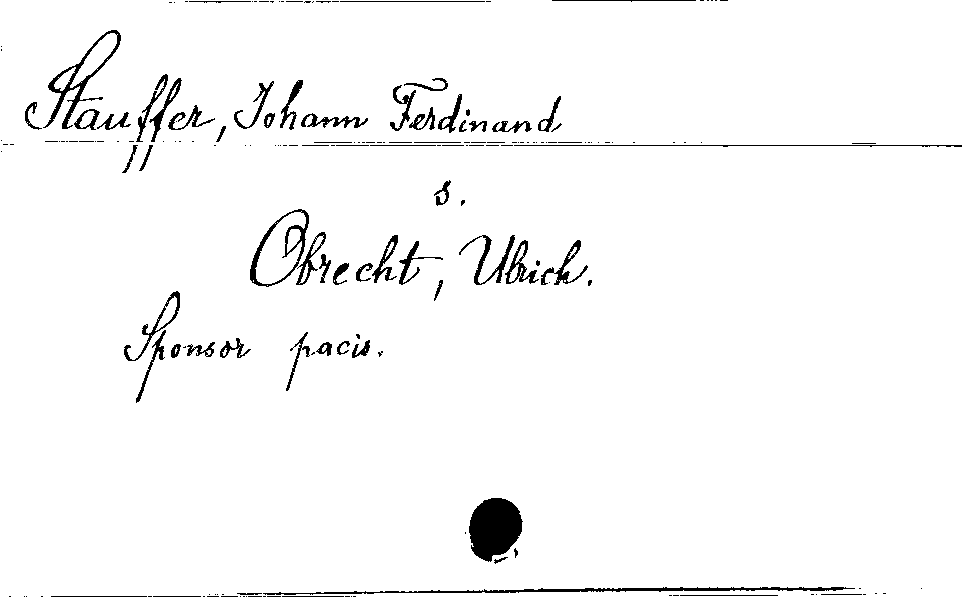 Stauffer, Johann Ferdinand
s.
Obrecht, Ulrich.
Sponsor pacis.